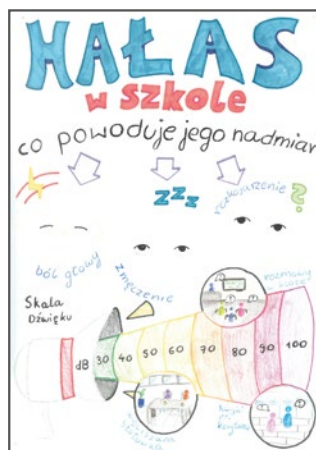 HAŁAS
w szkole
co powoduje jego nadmiar
zzz
rozkojarzenie ?
ból głowy
zmęczenie
rozmowy
Skala
Dźwięku
dB 30 40 50 60 70 80 90 100